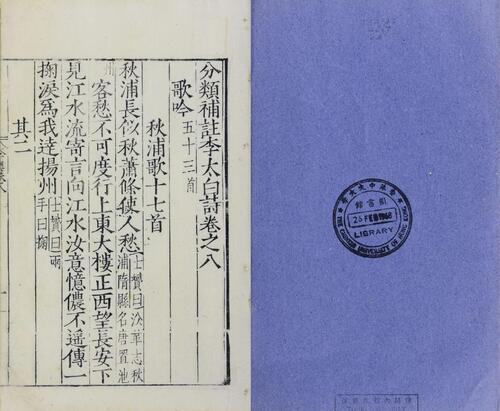 分類補註李太白詩卷之八
歌吟五十三首
秋浦歌十七首
秋浦長似秋蕭條使人愁士贇曰志秋浦隋縣名唐置池
州客愁不可度行上東大樓正西望長安下
見江水流寄言向江水汝意憶儂不遙傳一
掬淚爲我達揚州士贇曰兩手曰掬
其二
香港中文大學
圖書館
26 FEB 1968
LIBRARY
THE CHINESE UNIVERSITY OF HONG KONG